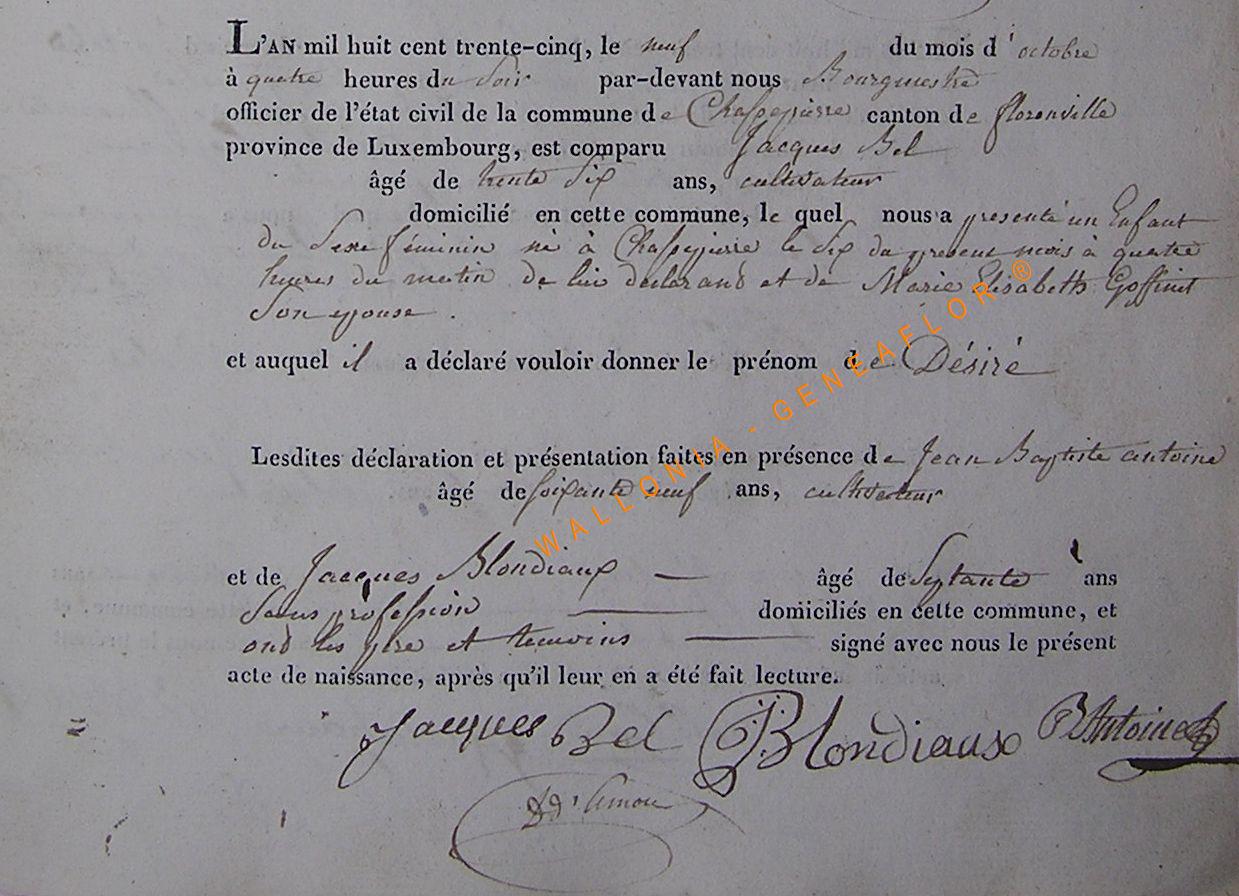 L'AN mil huit cent trente-cinq, le neuf du mois d'octobre
à quatre heures du Soir par-devant nous Bourgmestre
officier de l'état civil de la commune de Chassepierre canton de florenville
province de Luxembourg, est comparu Jacques Bel
âgé de trente Six ans, cultivateur
domicilié en cette commune, le quel nous a presenté un Enfant
du Sexe féminin né à Chassepierre le Six du present mois à quatre
heures du matin de lui declarant et de Marie Elisabeth Goffinet
Son epouse.
et auquel il a déclaré vouloir donner le prénom de Désiré
Lesdites déclaration et présentation faites en présence de Jean Baptiste antoine
âgé de soixante neuf ans, cultivateur
et de Jacques Blondiaux — âgé de Septante ans
Sans profession — domiciliés en cette commune, et
ont les père et temoins — signé avec nous le présent
acte de naissance, après qu'il leur en a été fait lecture.
Jacques Bel JBlondiaux Antoine
WALLONIA - GENEAFLOR ®